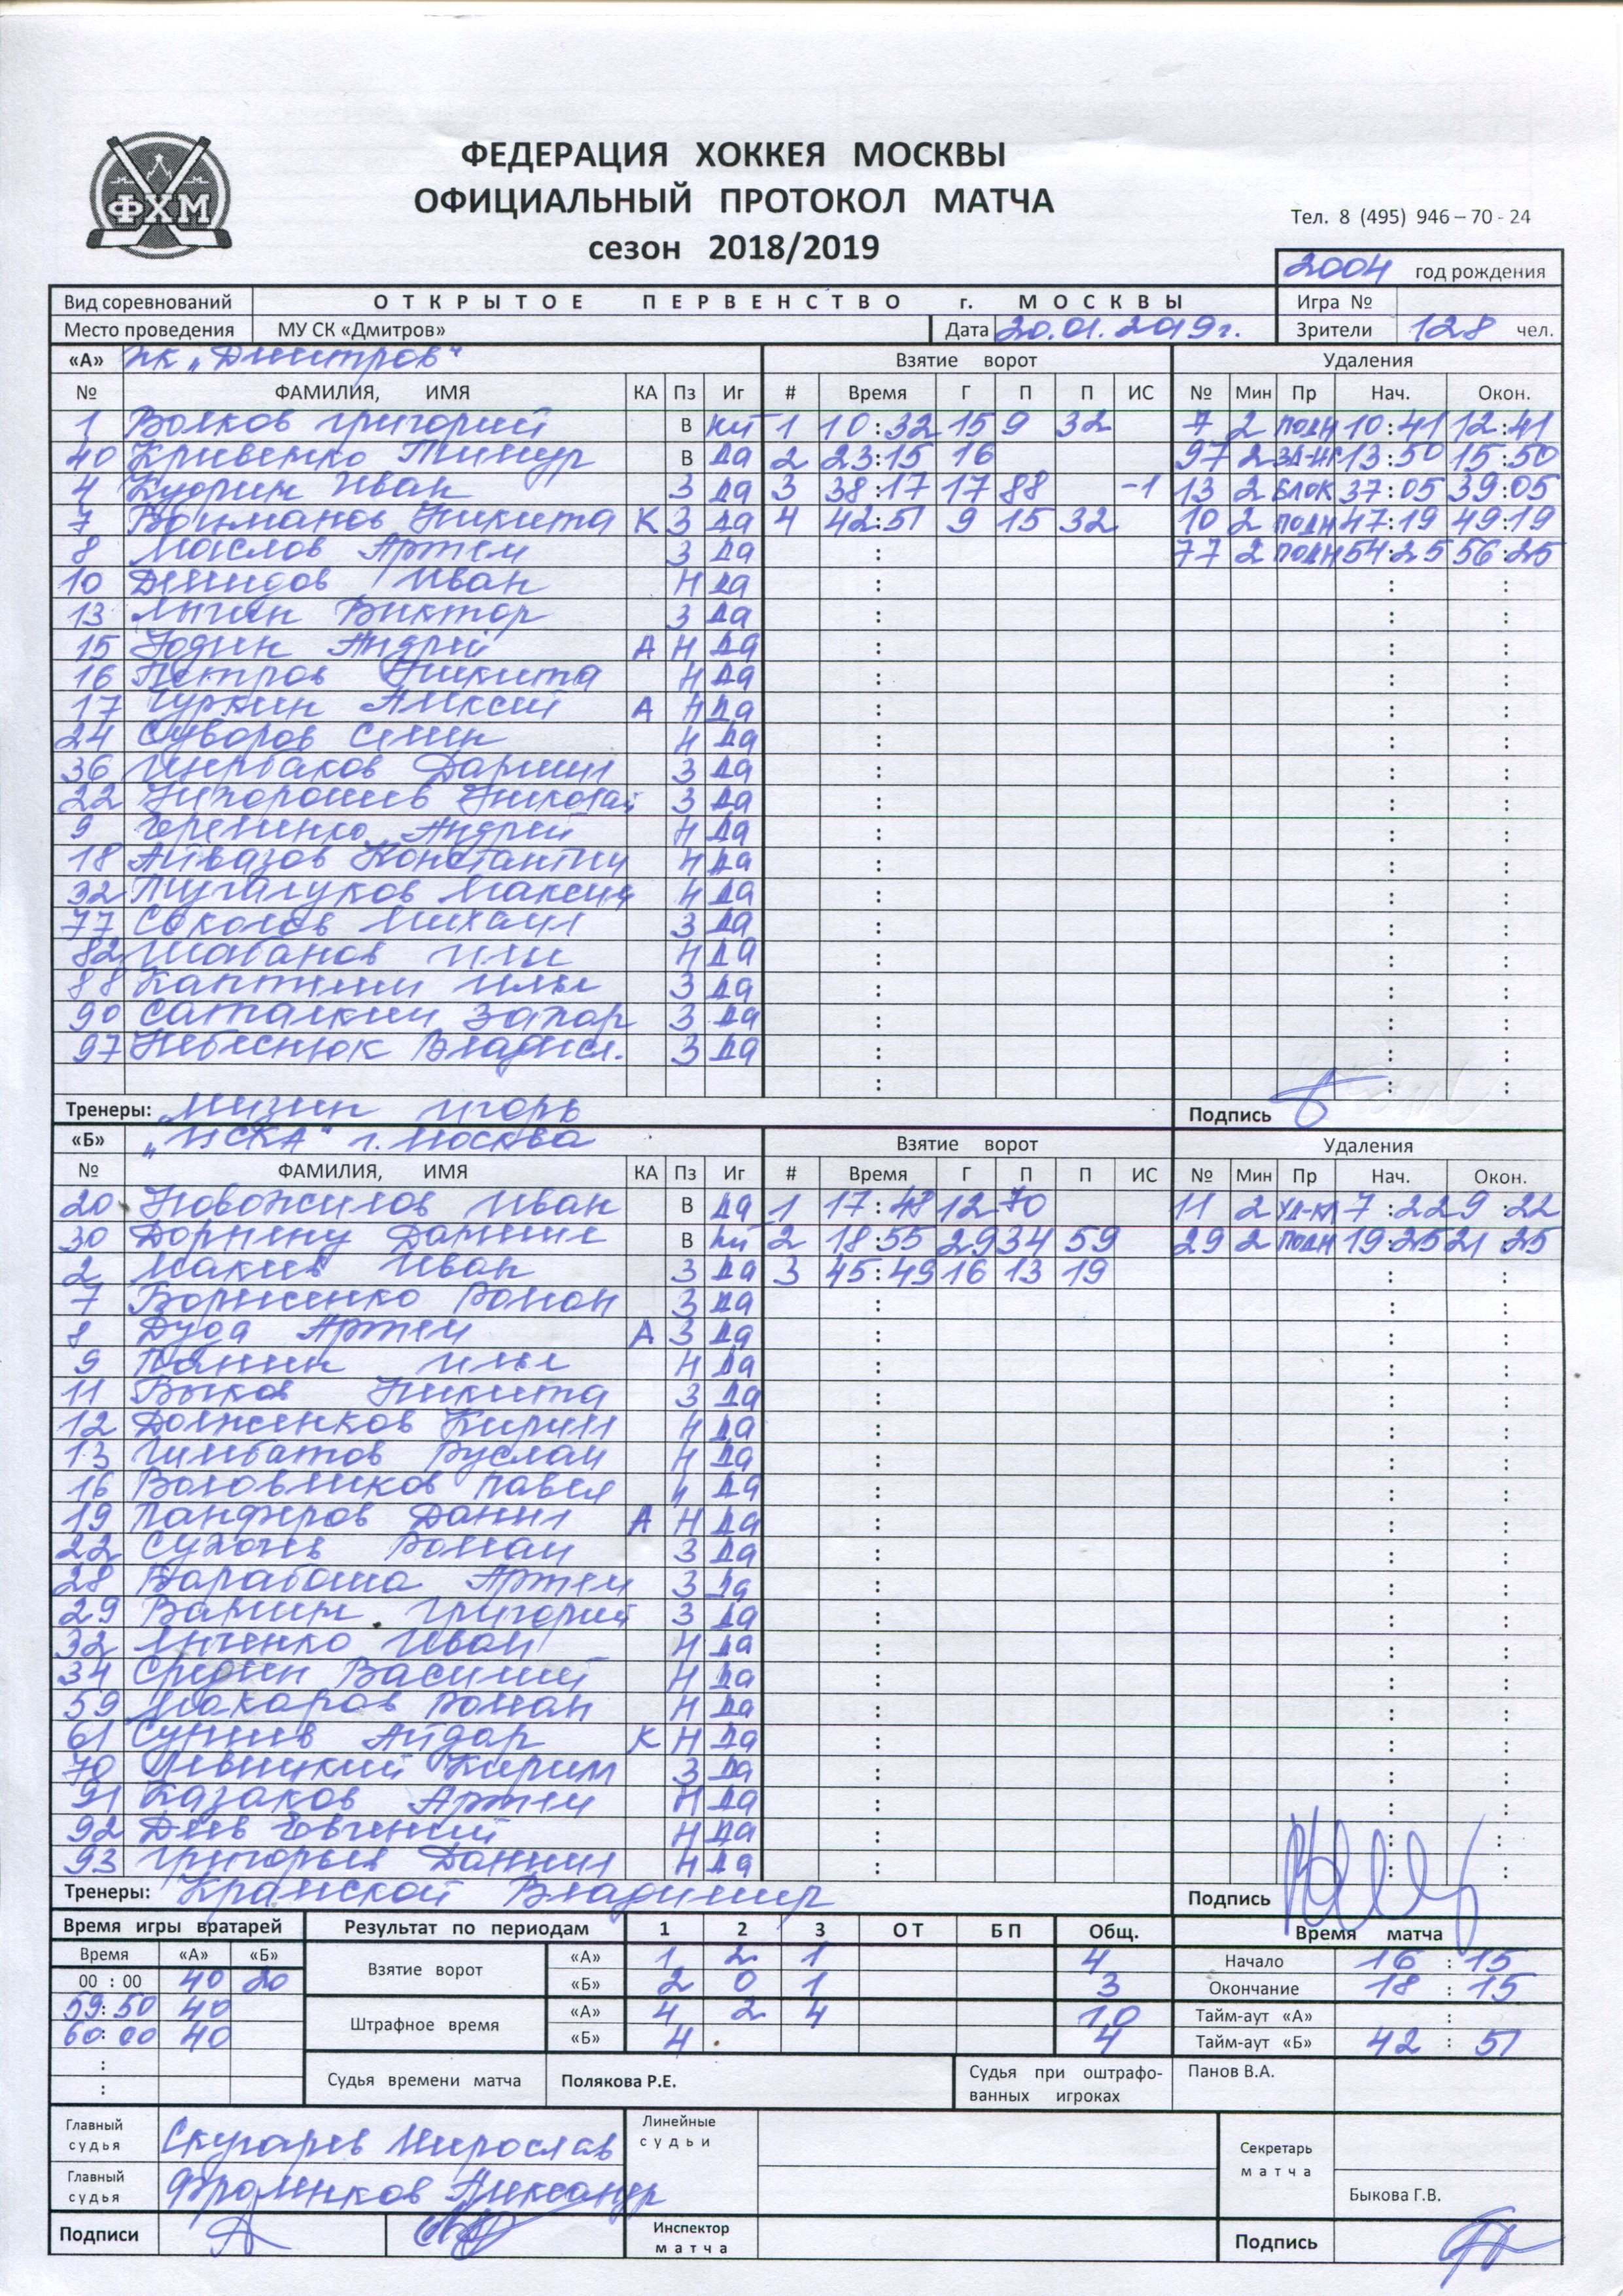 ФХМ
ФЕДЕРАЦИЯ ХОККЕЯ МОСКВЫ
ОФИЦИАЛЬНЫЙ ПРОТОКОЛ МАТЧА
Тел. 8 (495) 946 – 70 - 24
сезон 2018/2019
2004 год рождения
Вид соревнований ОТКРЫТОЕ ПЕРВЕНСТВО г. МОСКВЫ Игра №
Место проведения МУ СК «Дмитров» Дата 20.01.2019г. Зрители 128 чел.
«А» ХК „Дмитров“ Взятие ворот Удаления
№ ФАМИЛИЯ, ИМЯ КА Пз Иг # Время Г П П ИС № Мин Пр Нач. Окон.
1 Волков Григорий В 1 10:32 15 9 32 7 2 подн 10:41 12:41
40 Кривенко Тимур В да 2 23:15 16 97 2 13:50 15:50
4 Кудрин Иван З да 3 38:17 17 88 -1 13 2 блок 37:05 39:05
7 Никита К З да 4 42:51 9 15 32 10 2 подн 47:19 49:19
8 Маслов Артем З да : 77 2 подн 54:25 56:25
10 Демидов Иван Н да : : :
13 Лычён Виктор З да : : :
15 Юдин Андрей А Н да : : :
16 Петров Никита Н да : : :
17 Чуркин Алексей А Н да : : :
24 Суворов Семен Н да : : :
36 Щербаков Даниил З да : : :
22 Николай З да : : :
9 Андрей Н да : : :
18 Айвазов Константин Н да : : :
32 Максим Н да : : :
77 Соколов Михаил З да : : :
82 Шабанов Илья Н да : : :
88 Илья З да : : :
90 Саталкин Захар З да : : :
97 Небеснюк Владисл. З да : : :
: : :
Тренеры: Мизин Игорь Подпись
«Б» „ЦСКА“ г. Москва Взятие ворот Удаления
№ ФАМИЛИЯ, ИМЯ КА Пз Иг # Время Г П П ИС № Мин Пр Нач. Окон.
20 Новожилов Иван В да 1 17: 12 70 11 2 уд-кл 7:22 9:22
30 Даниил В 2 18:55 29 34 59 29 2 подн 19:25 21:25
2 Макеев Иван З да 3 45:49 16 13 19 : :
7 Борисенко Роман З да : : :
8 Дуда Артем А З да : : :
9 Панин Илья Н да : : :
11 Быков Никита З да : : :
12 Долженков Кирилл Н да : : :
13 Гимбатов Руслан Н да : : :
16 Воловников Павел Н да : : :
19 Панферов Данил А Н да : : :
22 Сухочев Роман З да : : :
28 Барабоша Артем З да : : :
29 Варшин Григорий З да : : :
32 Иван Н да : : :
34 Средин Василий Н да : : :
59 Макаров Роман Н да : : :
61 Суниев Айдар К Н да : : :
70 Левицкий Кирилл З да : : :
91 Казаков Артем Н да : : :
92 Деев Евгений Н да : : :
93 Григорьев Даниил Н да : : :
Тренеры: Крамской Владимир Подпись
Время игры вратарей Результат по периодам 1 2 3 ОТ БП Общ. Время матча
Время «А» «Б» Взятие ворот «А» 1 2 1 4 Начало 16 : 15
00 : 00 40 20 «Б» 2 0 1 3 Окончание 18 : 15
59:50 40 Штрафное время «А» 4 2 4 10 Тайм-аут «А» :
60:00 40 «Б» 4 4 Тайм-аут «Б» 42 : 51
:
:
Судья времени матча Полякова Р.Е. Судья при оштрафо-ванных игроках Панов В.А.
Главный судья Скугарев Мирослав Линейные судьи Секретарь матча
Главный судья Фроленков Александр Быкова Г.В.
Подписи Инспектор матча Подпись